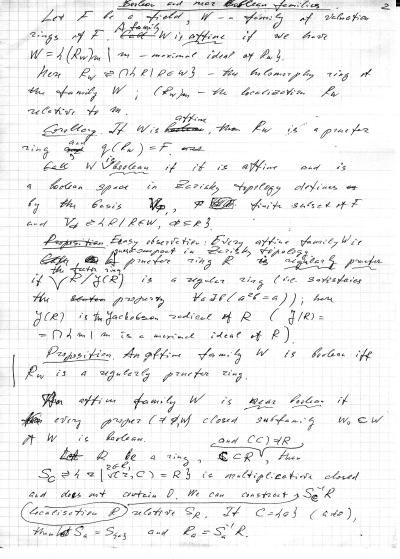 Boolean and near Boolean families. 2
Let F be a field, W - a family of valuation
rings of F. A family W is affine if we have
W = {(R_W)_m | m - maximal ideal of R_W}.
Here R_W ⇌ ∩{R | R∈W} - the holomorphy ring of
the family W; (R_W)_m - the localization R_W
relative to m.
Corollary. If W is affine, then R_W is a prüfer
ring and q(R_W) = F.
Call W boolean if it is affine and is
a boolean space in Zarisky topology defines
by the basis V_α, α finite subset of F
and V_α ⇌ {R | R∈W, α⊆R}
Proposition Easy observation: Every affine family W is
quasicompact in Zarisky topology.
A pruefer ring R is regularly pruefer
if the factor ring R/J(R) is a regular ring (i.e. satisfaies
the property ∀a∃b(a²b = a)); here
J(R) is the Jackobson radical of R (J(R) =
= ∩{m | m is a maximal ideal of R}).
Proposition. An affine family W is boolean iff
R_W is a regularly pruefer ring.
An affine family W is near boolean if
every proper (≠∅,W) closed subfamily W₀ ⊂ W
of W is boolean.
Let R be a ring, C⊂R and (C)≠R, then
S_C ⇌ {r | r∈R, (r, C) = R} is multiplicative closed
and does not contain 0. We can construct S_C⁻¹R
(localisation R) relative S_R. If C={a} (a≠0),
then S_a = S_{a} and R_a = S_a⁻¹R.